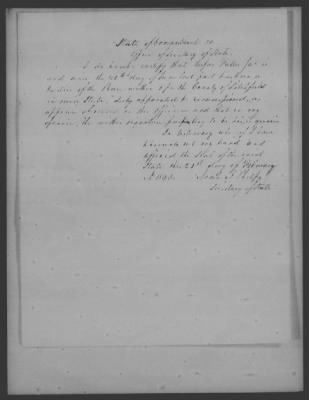 State of Connecticut ss.
Office of Secretary of State.
I do hereby certify that Rufus Fuller Jr. is
and was, the day of last past been a
Justice of the Peace within & for the County of Litchfield
in said State, duly appointed & commissioned, as
appears of record in this office and that in my
opinion, the within signature purporting to be his is genuine
In testimony whereof I have
hereunto set my hand and
affixed the Seal of the said
State this 21st day of February
A. D.
Secretary of State